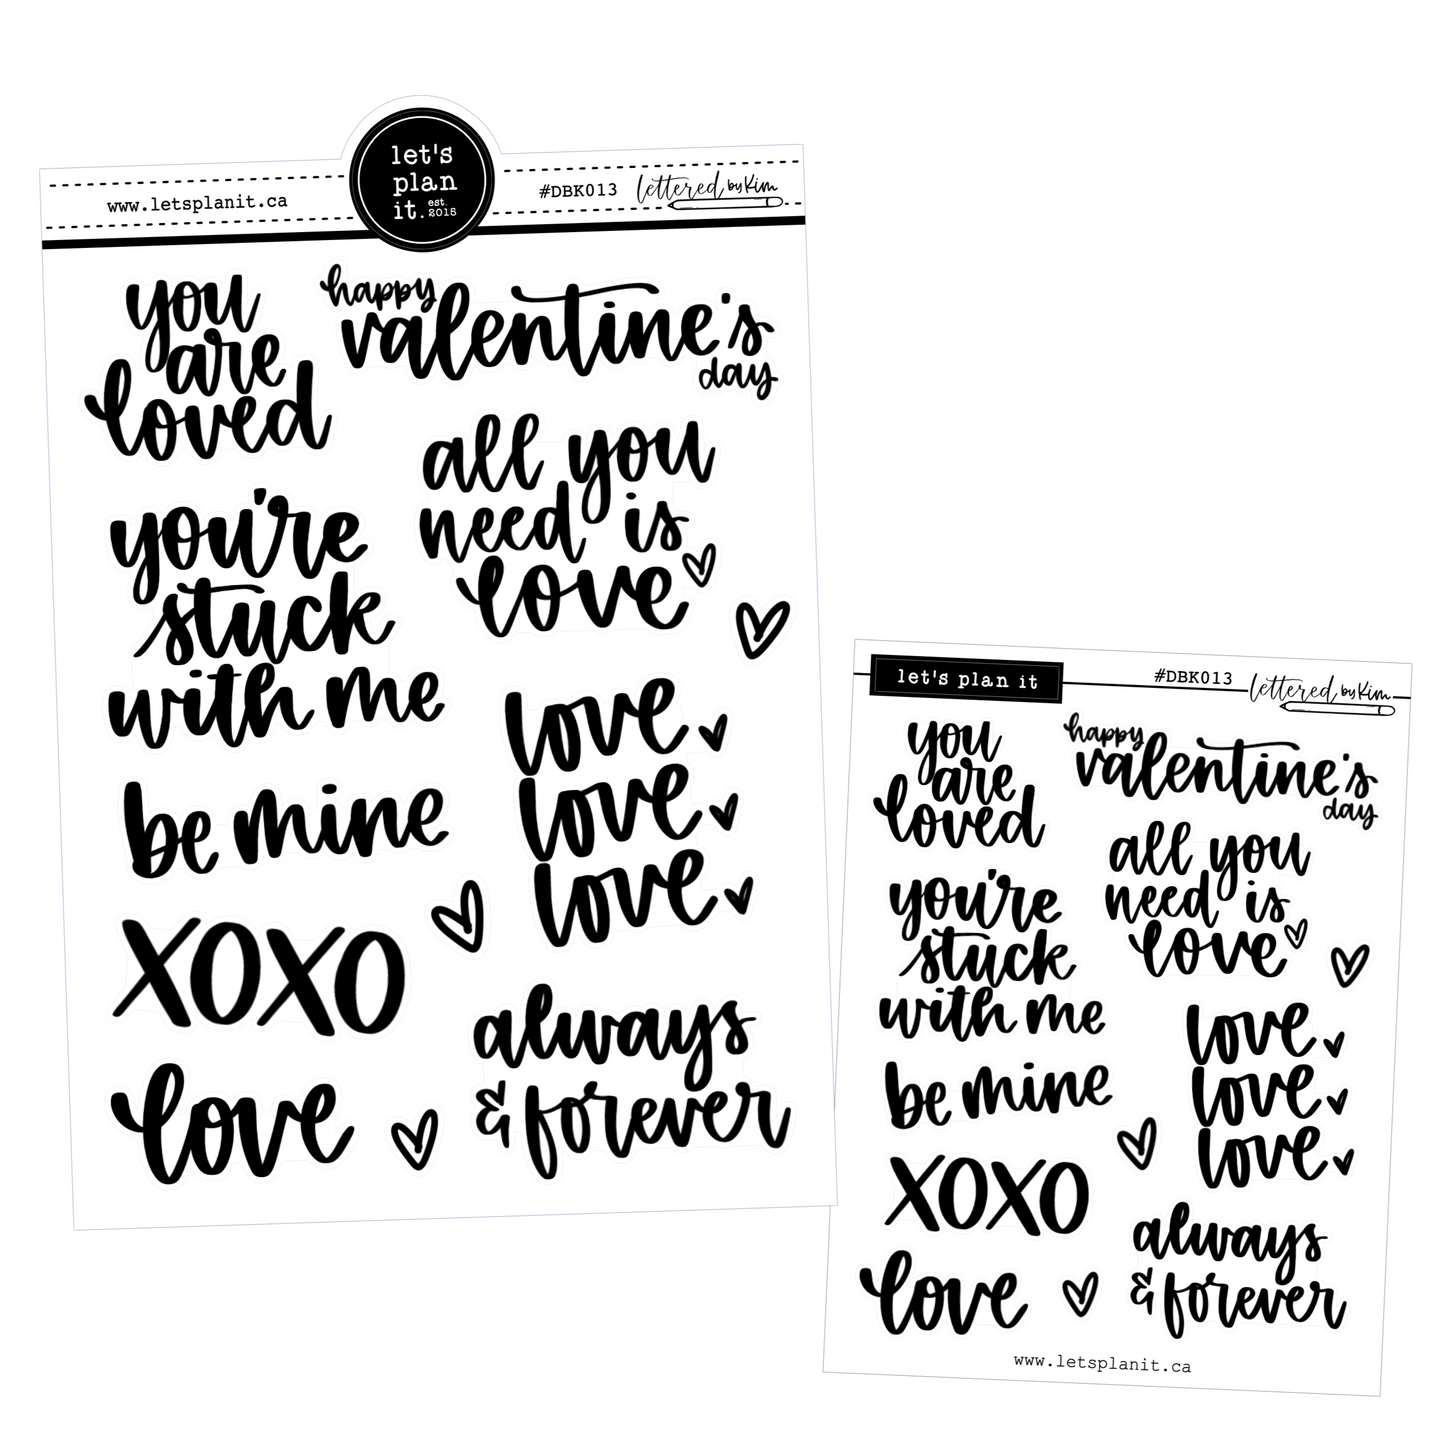 let's
plan
it. est. 2015
www.letsplanit.ca
#DBK013
lettered by Kim
you
are
loved
happy
valentine's
day
all you
need is
love
you're
stuck
with me
love
love
love
be mine
xoxo
always
& forever
love
let's plan it
#DBK013
lettered by Kim
you
are
loved
happy
valentine's
day
all you
need is
love
you're
stuck
with me
love
love
love
be mine
xoxo
always
& forever
love
www.letsplanit.ca